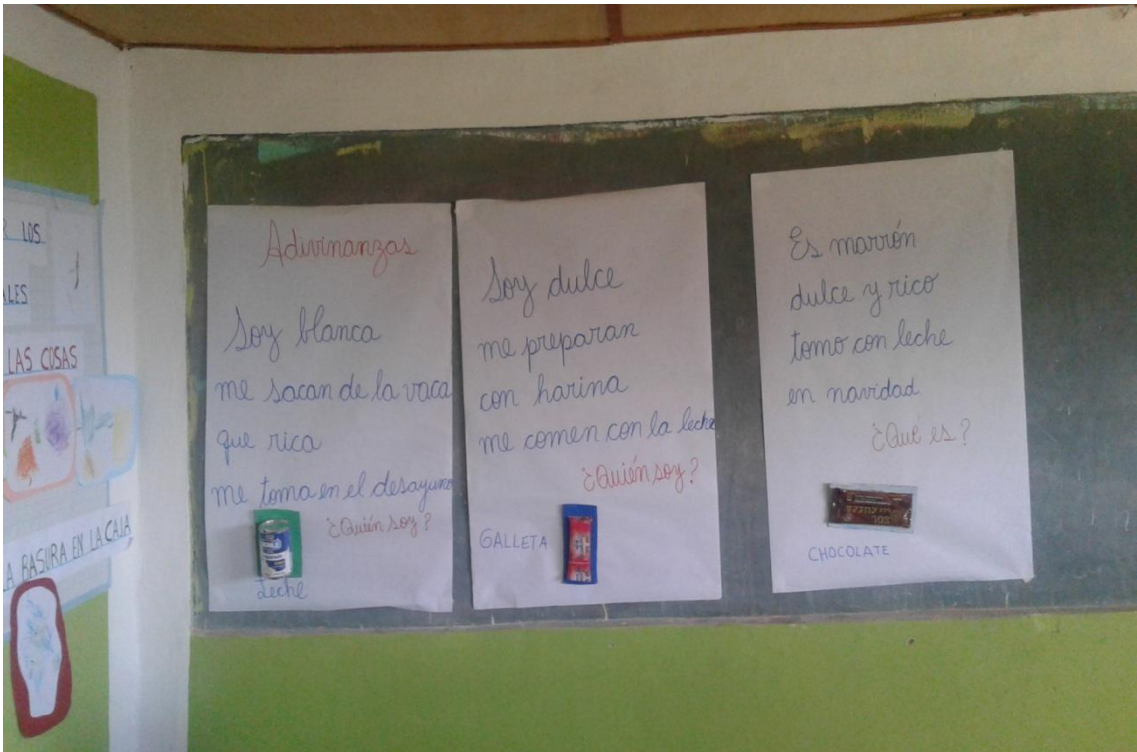 R LOS
ALES
LAS COSAS
A BASURA EN LA CAJA
Adivinanzas
Soy blanca
me sacan de la vaca
que rica
me toma en el desayuno
¿Quién soy?
Leche
Soy dulce
me preparan
con harina
me comen con la leche
¿Quién soy?
GALLETA
Es marrón
dulce y rico
tomo con leche
en navidad
¿Qué es?
CHOCOLATE
SOL
DEL CUZCO